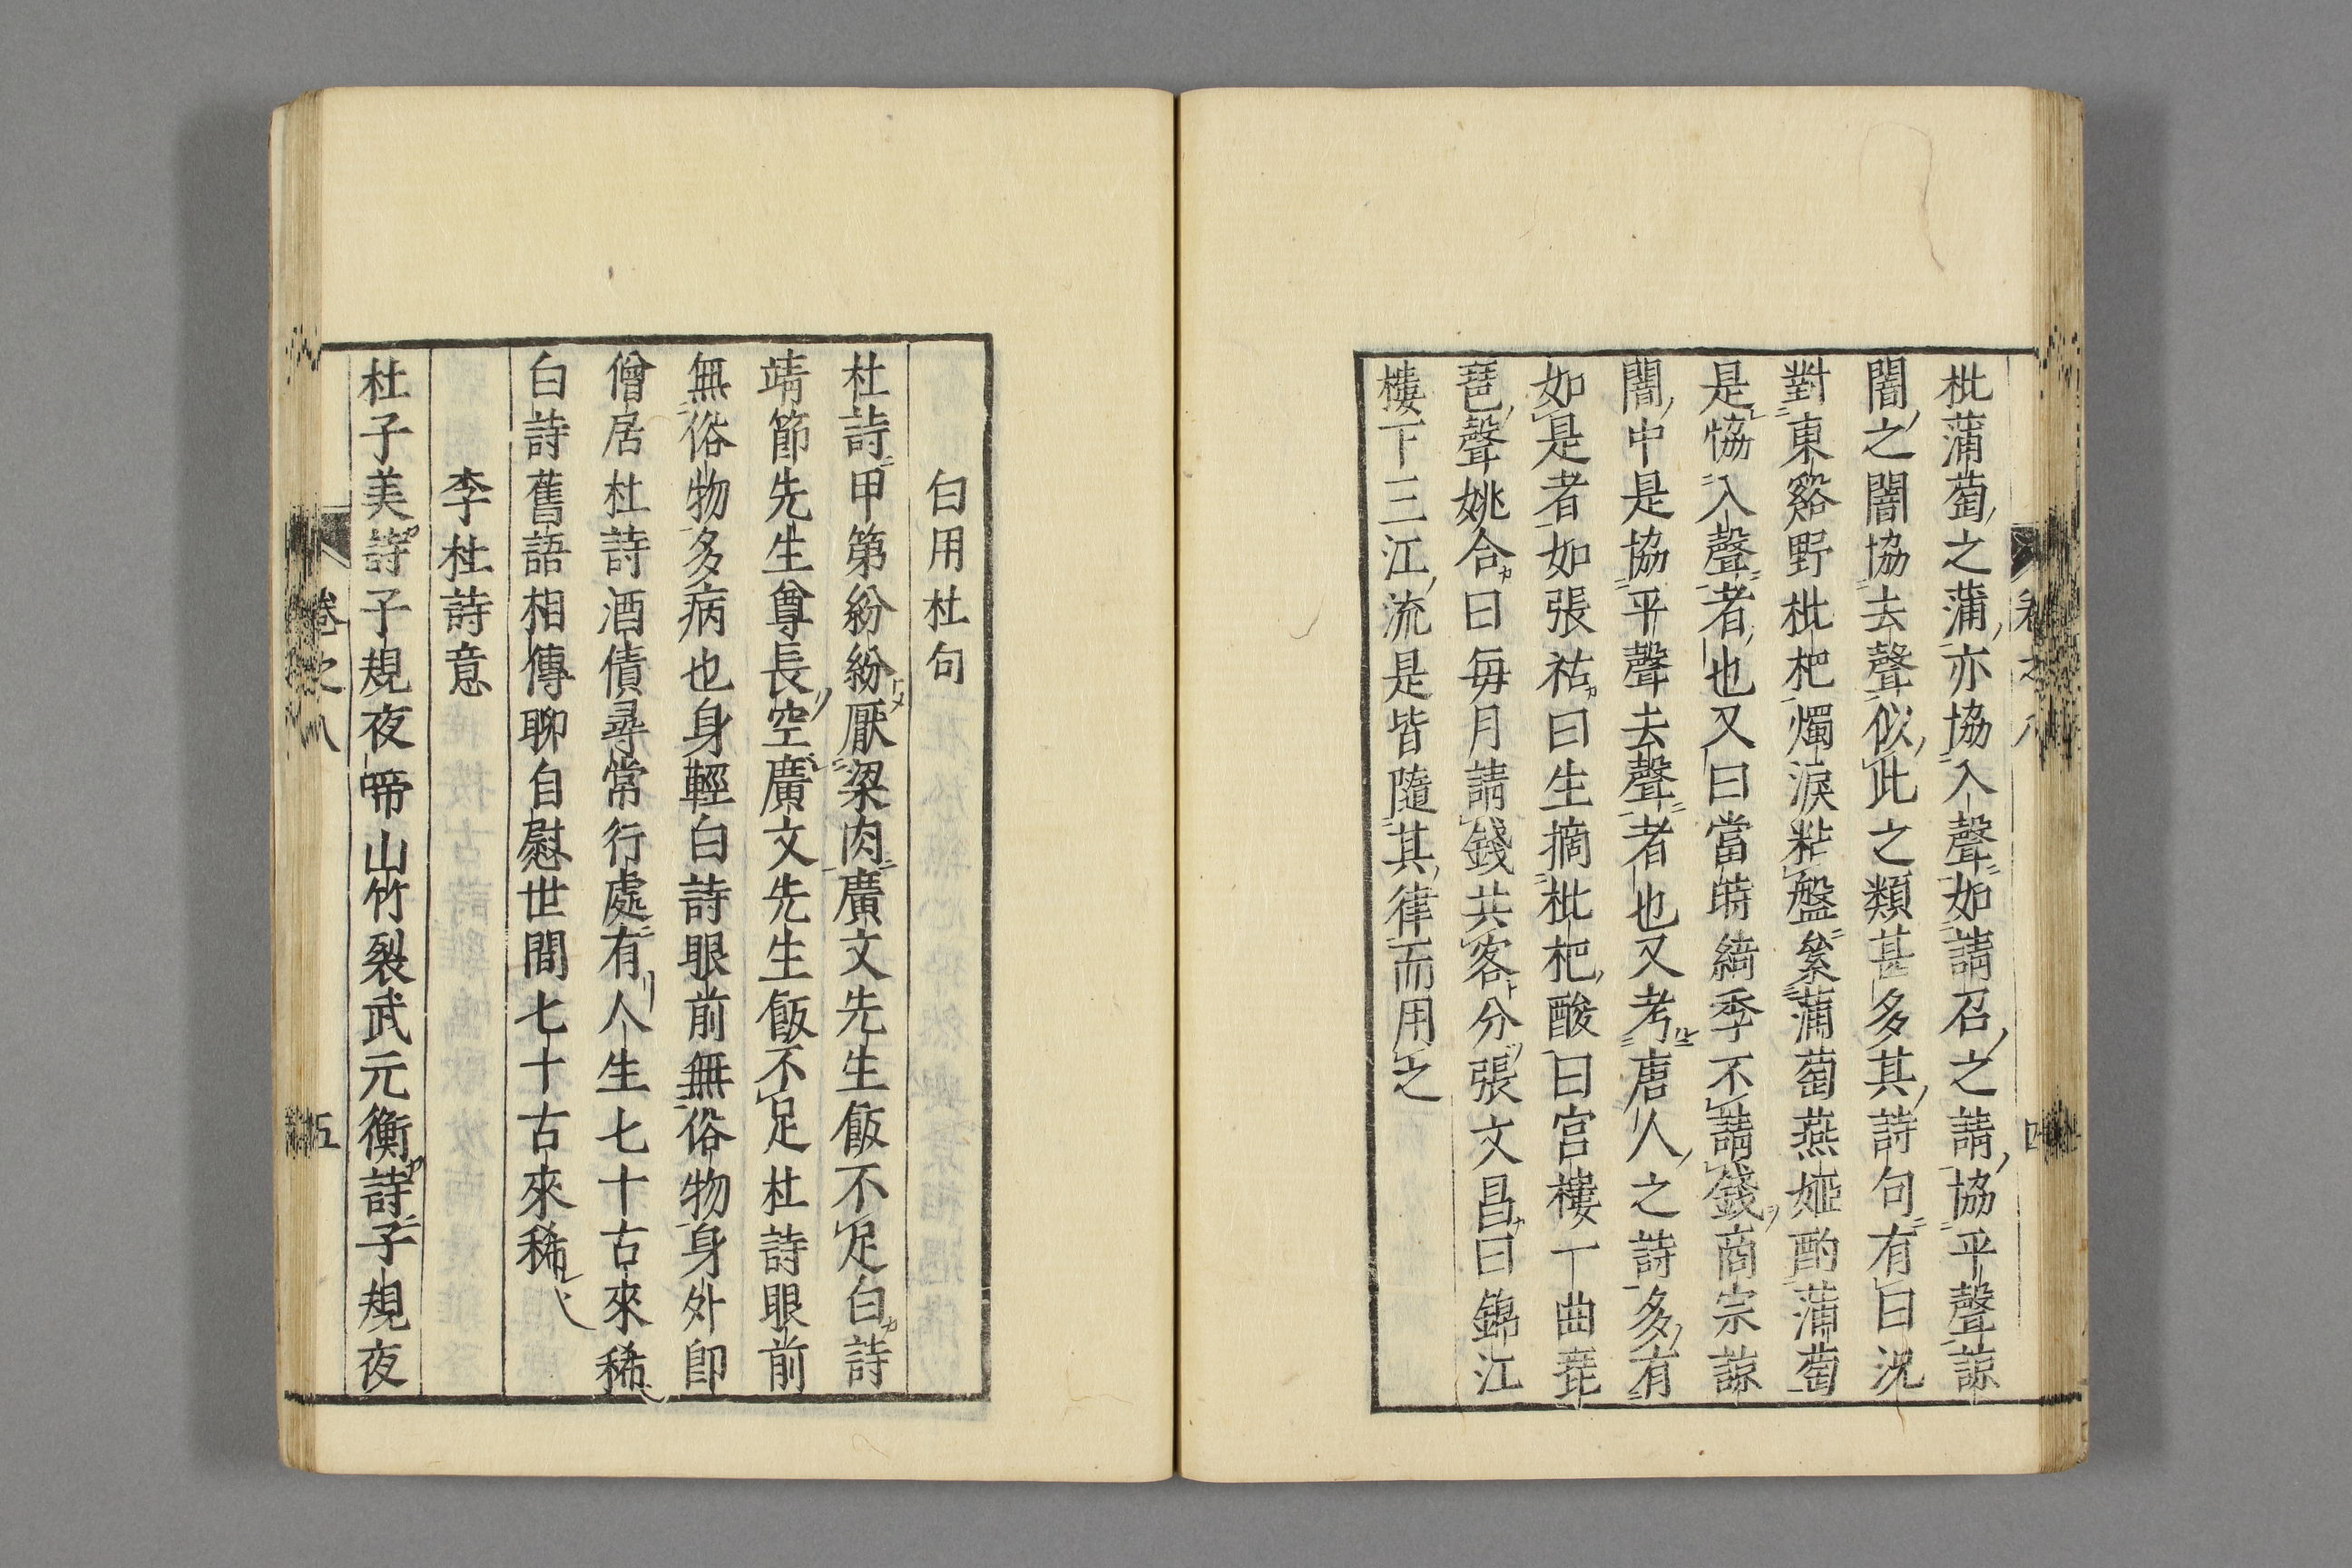 枇蒲萄之蒲亦協入聲如請召之請協平聲諒
闇之闇協去聲似此之類甚多其詩句有曰況
對東谿野枇杷燭淚粘盤纍蒲萄燕姬酌蒲萄
是恊入聲者也又曰當時綺季不請錢商宗諒
闇中是協平聲去聲者也又考唐人之詩多有
如是者如張祜曰生摘枇杷酸曰宮樓一曲琵
琶聲姚合曰每月請錢共客分張文昌曰錦江
樓下三江流是皆隨其律而用之
白用杜句
杜詩甲第紛紛厭梁肉廣文先生飯不足白詩
靖節先生尊長空廣文先生飯不足杜詩眼前
無俗物多病也身輕白詩眼前無俗物身外卽
僧居杜詩酒債尋常行處有人生七十古來稀
白詩舊語相傳聊自慰世間七十古來稀
李杜詩意
杜子美詩子規夜啼山竹裂武元衡詩子規夜
卷之八
五